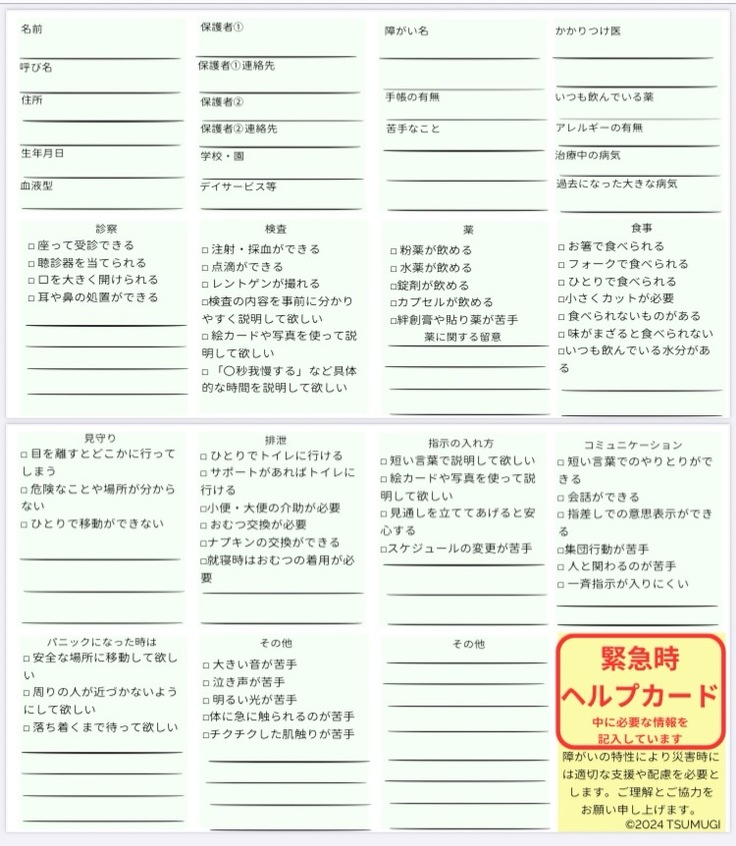 名前
呼び名
住所
生年月日
血液型
保護者①
保護者①連絡先
保護者②
保護者②連絡先
学校・園
デイサービス等
障がい名
手帳の有無
苦手なこと
かかりつけ医
いつも飲んでいる薬
アレルギーの有無
治療中の病気
過去になった大きな病気
診察
□ 座って受診できる
□ 聴診器を当てられる
□ 口を大きく開けられる
□ 耳や鼻の処置ができる
検査
□ 注射・採血ができる
□ 点滴ができる
□ レントゲンが撮れる
□検査の内容を事前に分かり
やすく説明して欲しい
□ 絵カードや写真を使って説
明して欲しい
□ 「〇秒我慢する」など具体
的な時間を説明して欲しい
薬
□ 粉薬が飲める
□ 水薬が飲める
□錠剤が飲める
□カプセルが飲める
□絆創膏や貼り薬が苦手
薬に関する留意
食事
□ お箸で食べられる
□ フォークで食べられる
□ ひとりで食べられる
□小さくカットが必要
□ 食べられないものがある
□ 味がまざると食べられない
□いつも飲んでいる水分があ
る
見守り
□ 目を離すとどこかに行って
しまう
□ 危険なことや場所が分から
ない
□ ひとりで移動ができない
排泄
□ ひとりでトイレに行ける
□ サポートがあればトイレに
行ける
□小便・大便の介助が必要
□ おむつ交換が必要
□ナプキンの交換ができる
□就寝時はおむつの着用が必
要
指示の入れ方
□ 短い言葉で説明して欲しい
□ 絵カードや写真を使って説
明して欲しい
□ 見通しを立ててあげると安
心する
□スケジュールの変更が苦手
コミュニケーション
□ 短い言葉でのやりとりがで
きる
□ 会話ができる
□ 指差しでの意思表示ができ
る
□集団行動が苦手
□ 人と関わるのが苦手
□ 一斉指示が入りにくい
パニックになった時は
□ 安全な場所に移動して欲し
い
□ 周りの人が近づかないよう
にして欲しい
□ 落ち着くまで待って欲しい
その他
□ 大きい音が苦手
□ 泣き声が苦手
□ 明るい光が苦手
□体に急に触られるのが苦手
□チクチクした肌触りが苦手
その他
緊急時
ヘルプカード
中に必要な情報を
記入しています
障がいの特性により災害時に
は適切な支援や配慮を必要と
します。ご理解とご協力を
お願い申し上げます。
©2024 TSUMUGI